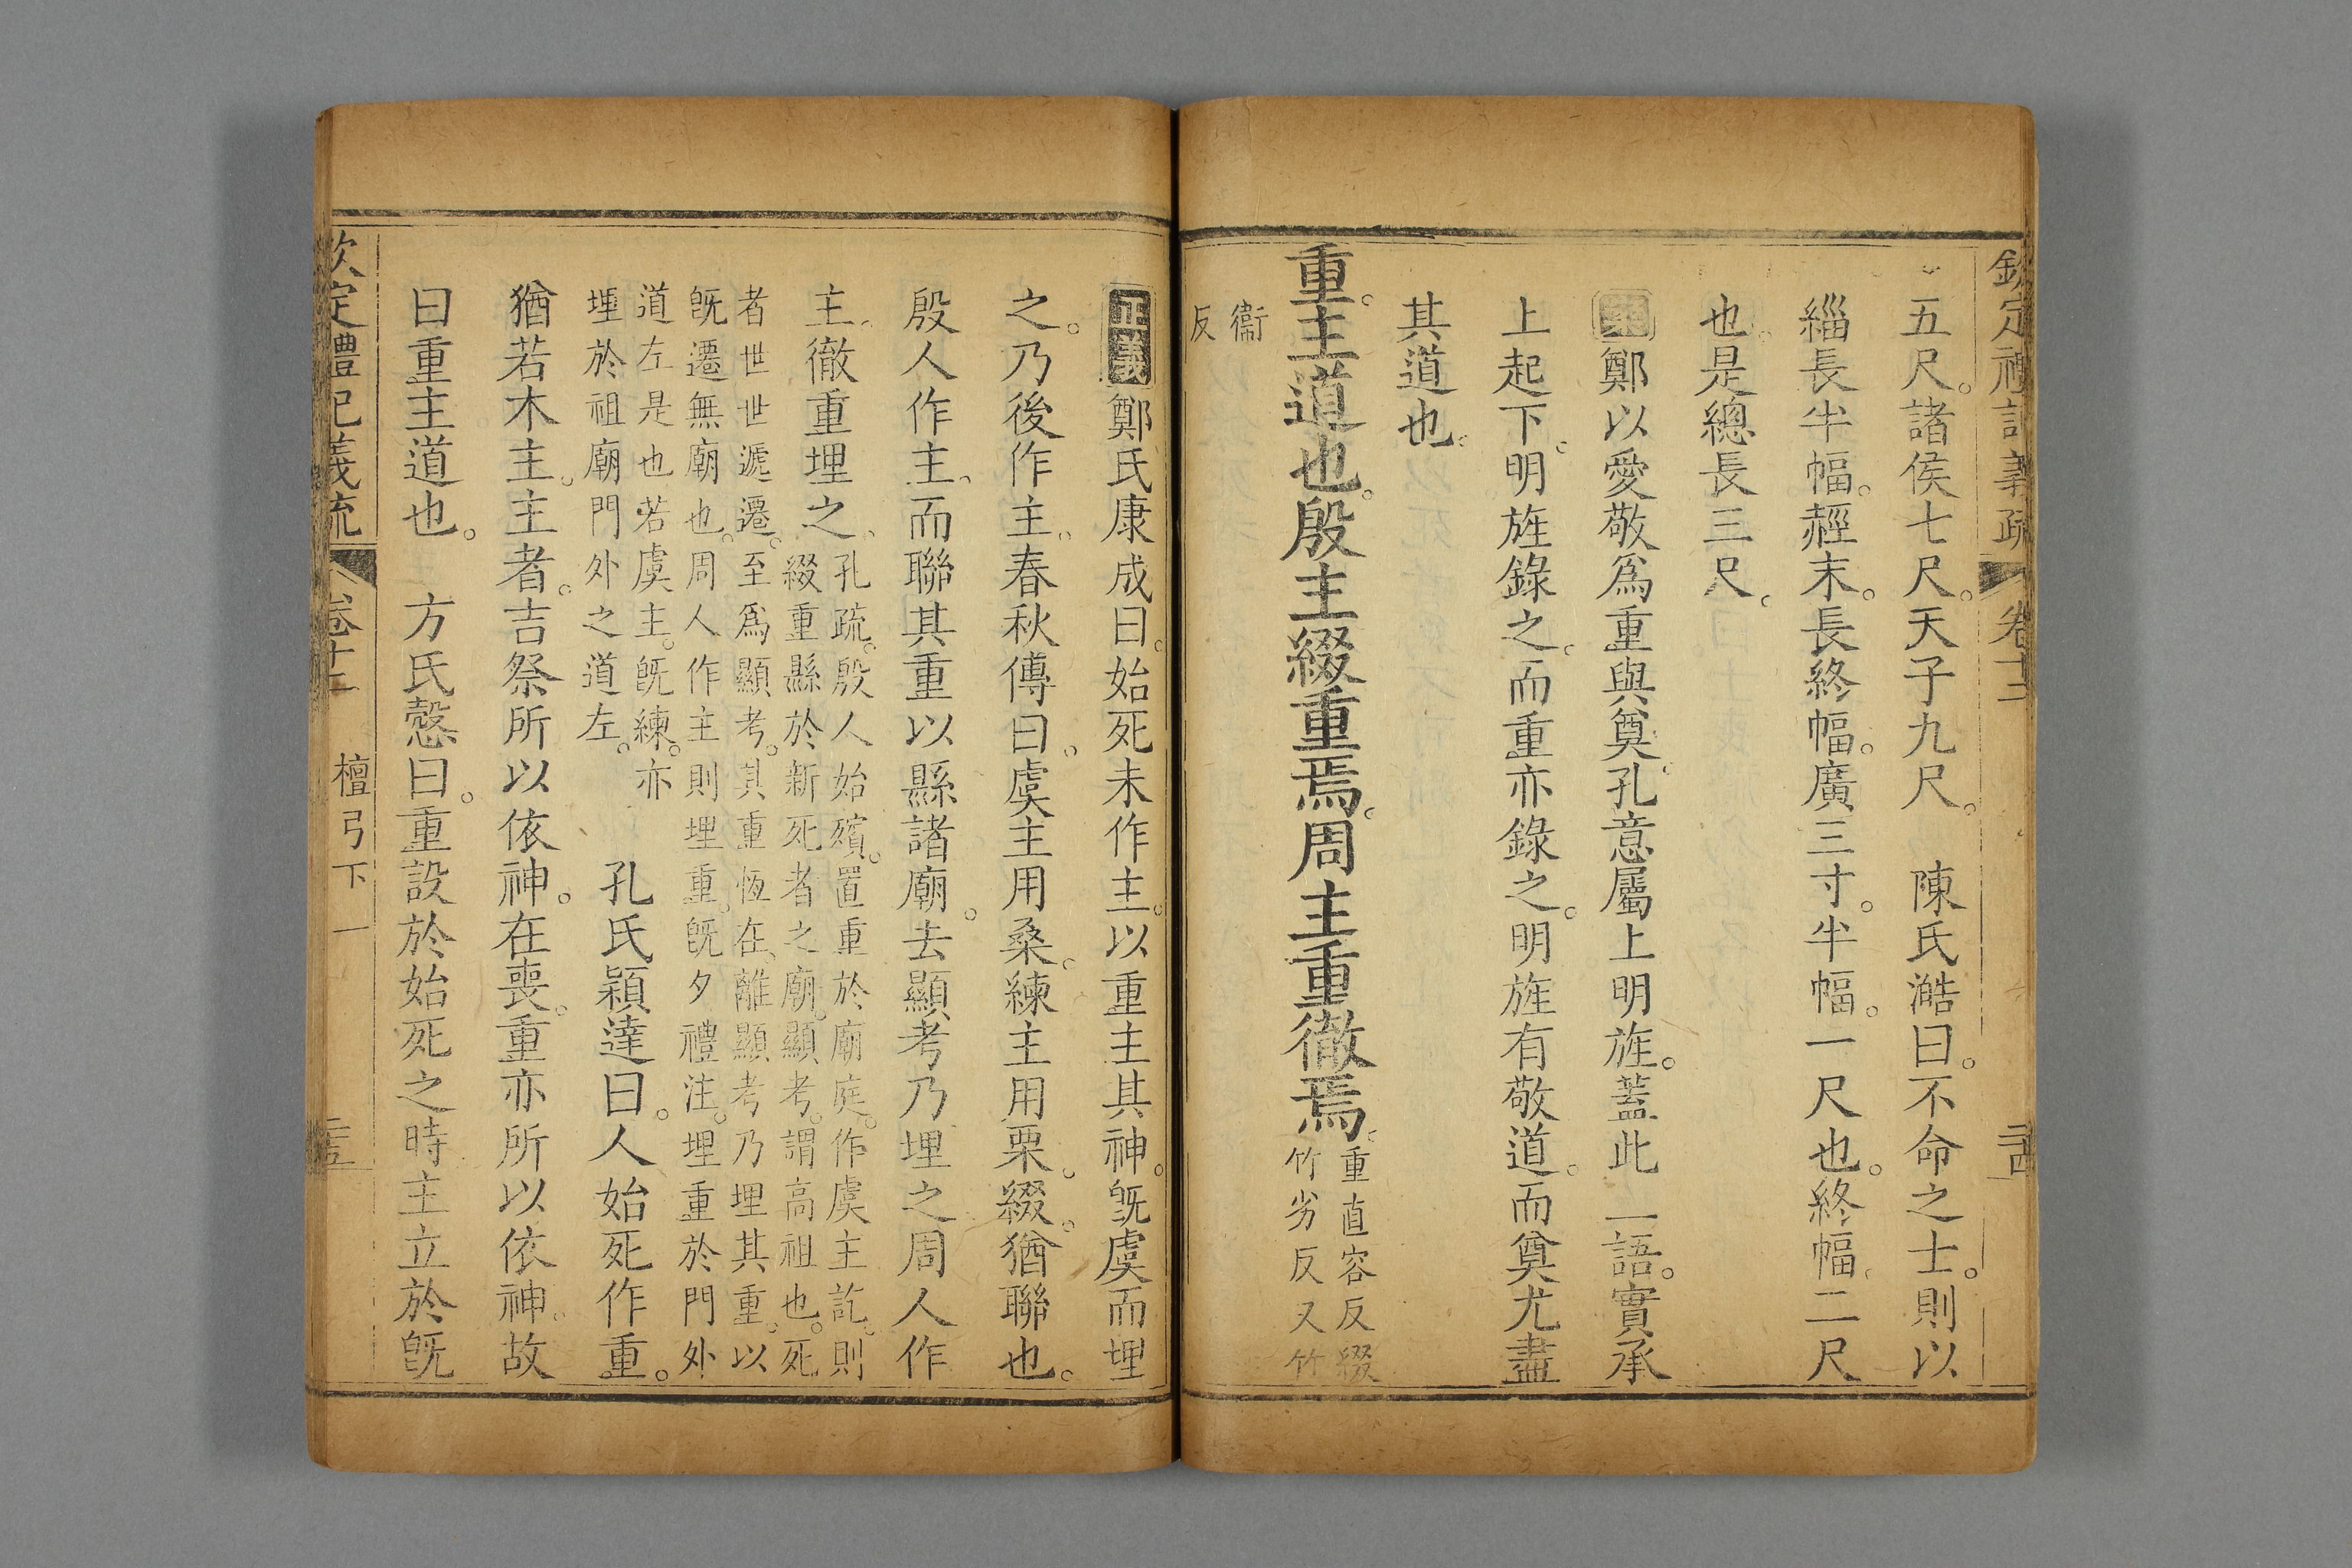 欽定禮記義疏 卷十二 二十四
五尺。諸侯七尺。天子九尺。 陳氏澔曰。不命之士。則以
緇長半幅。䞓末。長終幅。廣三寸。半幅。一尺也。終幅。二尺
也。是總長三尺。
案鄭以愛敬爲重與奠。孔意屬上明旌。蓋此一語。實承
上起下。明旌錄之。而重亦錄之。明旌有敬道。而奠尤盡
其道也。
重。主道也。殷主綴重焉。周主重徹焉。重直容反綴
竹劣反又竹
衞
反
正義鄭氏康成曰。始死未作主。以重主其神。旣虞而埋
之。乃後作主。春秋傳曰。虞主用桑。練主用栗。綴。猶聯也。
殷人作主。而聯其重以縣諸廟。去顯考乃埋之周人作
主。徹重埋之。孔疏。殷人始殯。置重於廟庭。作虞主訖。則
綴重縣於新死者之廟。顯考。謂高祖也。死
者世世遞遷。至爲顯考。其重恆在。離顯考乃埋其重。以
旣遷無廟也。周人作主則埋重。旣夕禮注。埋重於門外
道左是也若虞主。旣練。亦
埋於祖廟門外之道左。 孔氏穎達曰。人始死作重。
猶若木主。主者。吉祭所以依神。在喪。重亦所以依神。故
曰重主道也。 方氏慤曰。重設於始死之時主立於旣
欽定禮記義疏 卷十二 檀弓下一 二十五